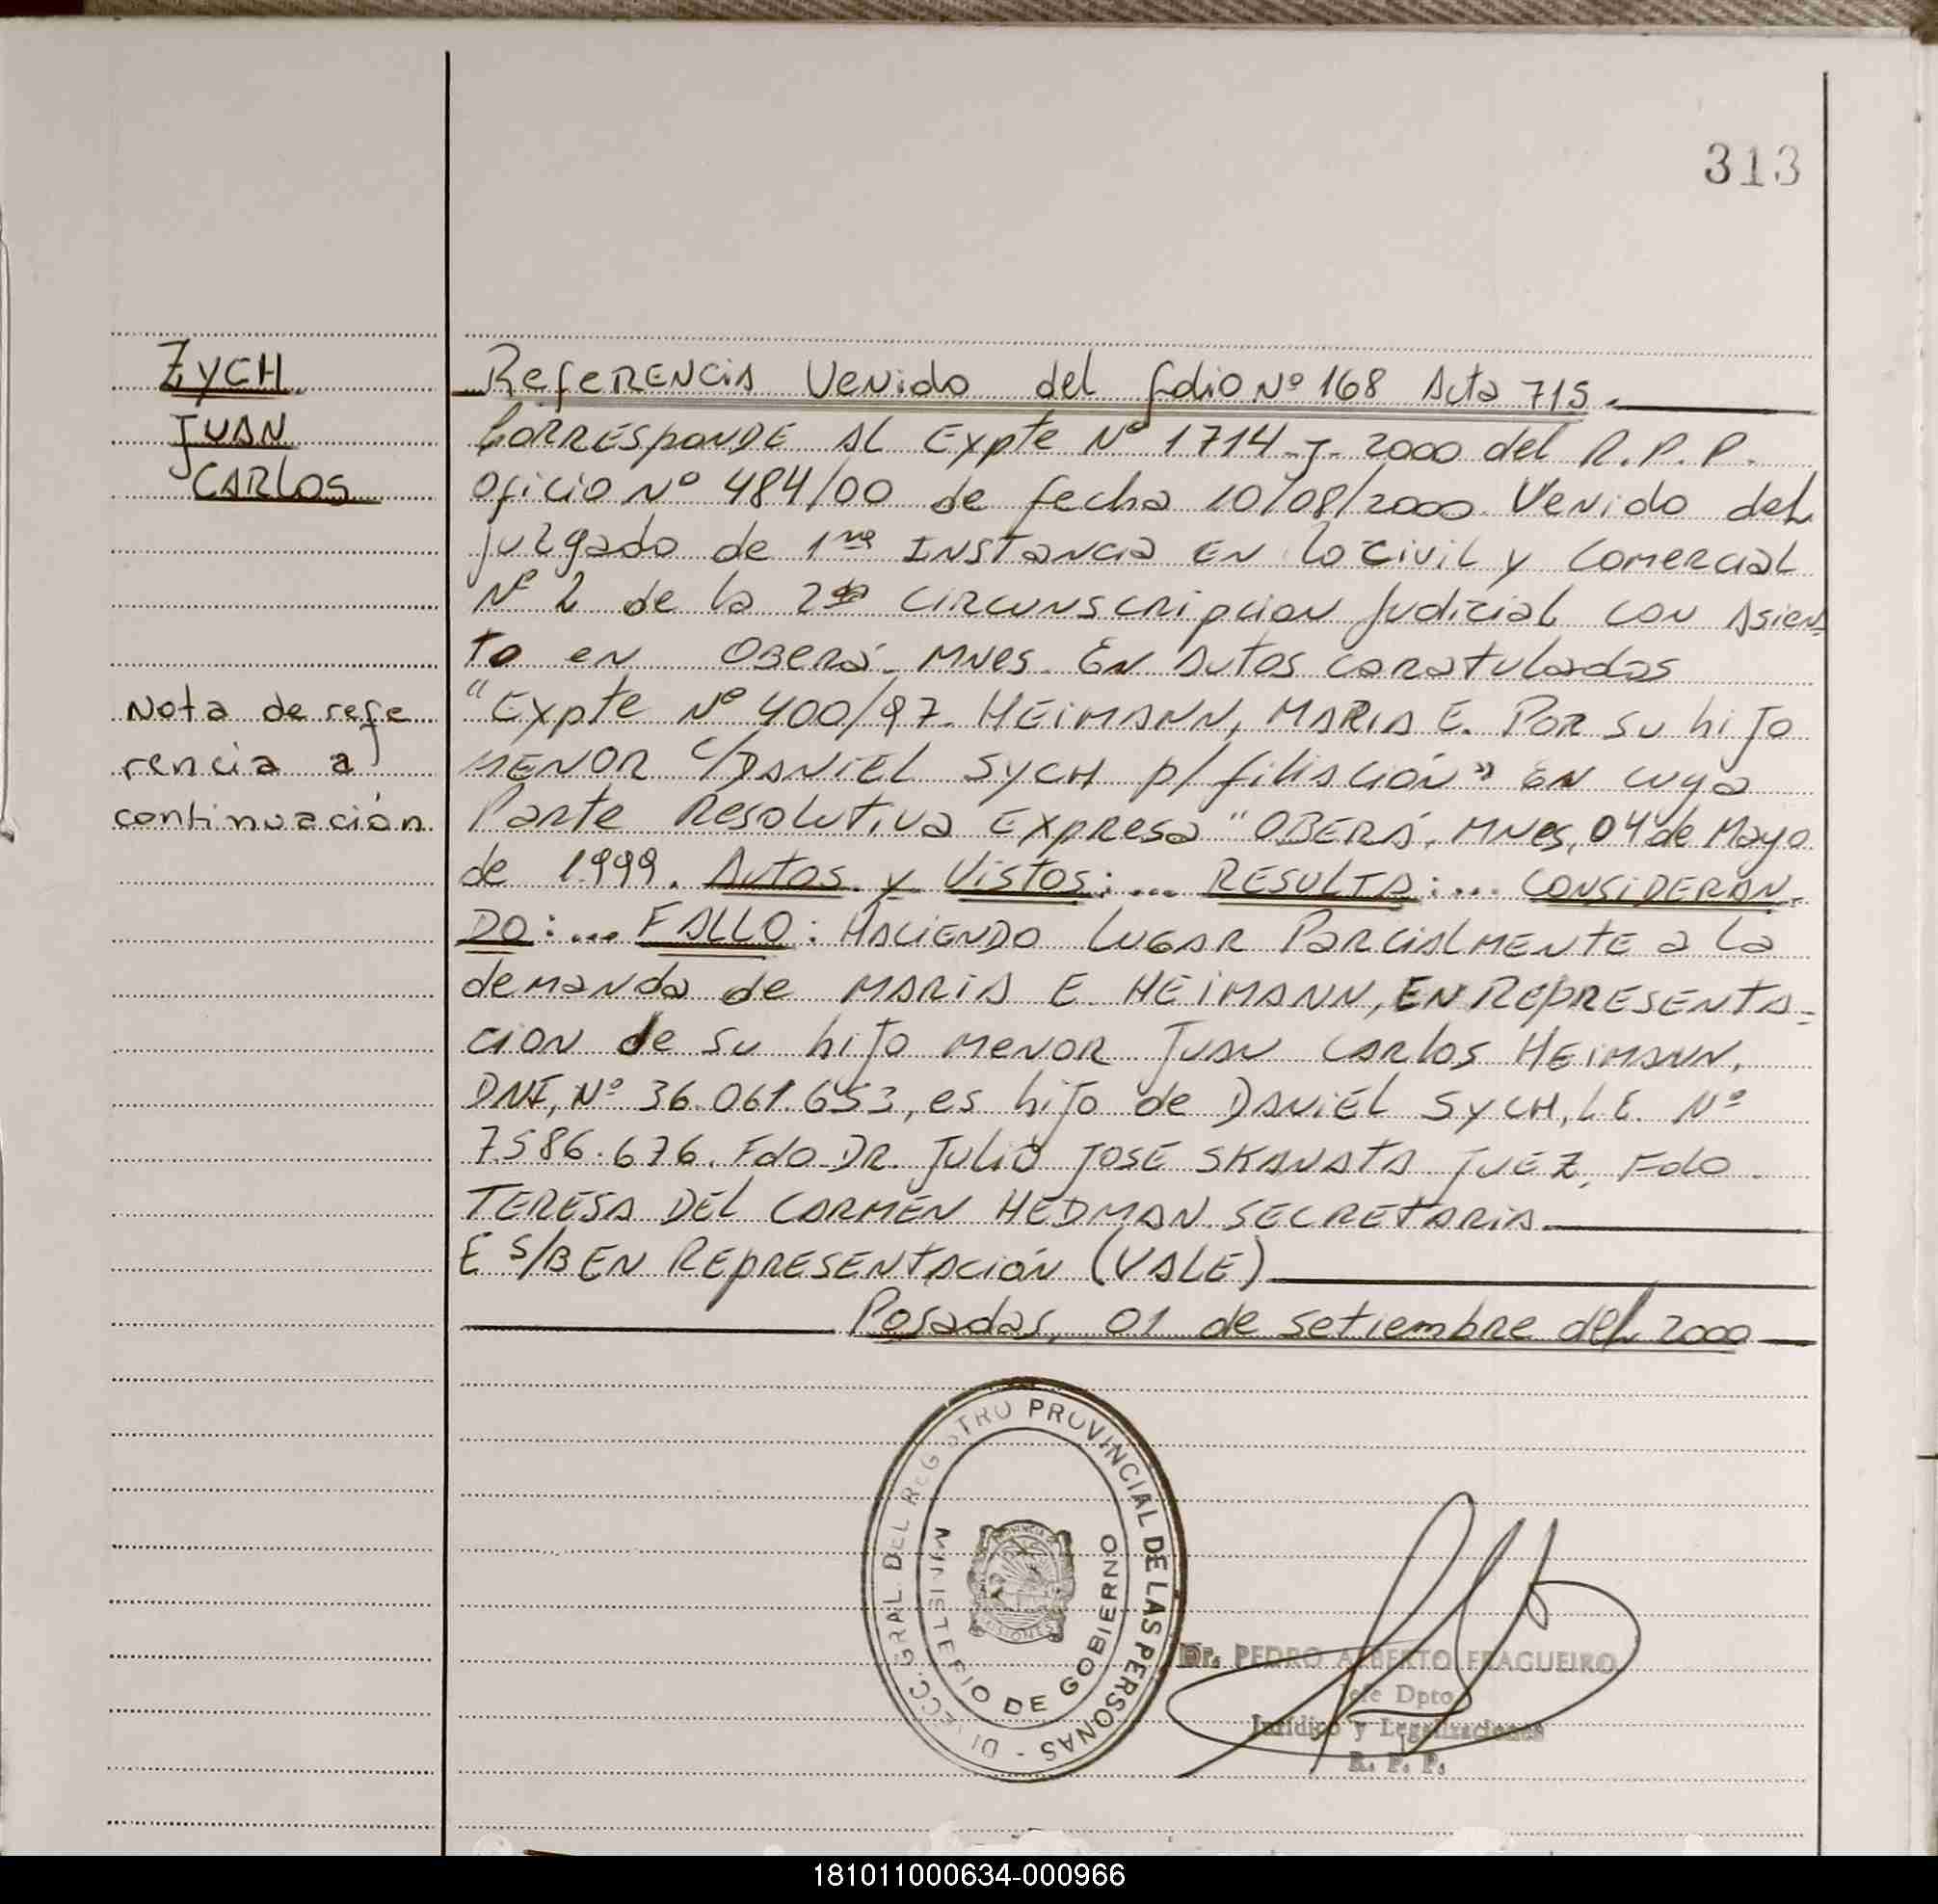 313
ZYCH
JUAN
CARLOS
Nota de refe
rencia a
continuación
Referencia Venido del folio Nº 168 Acta 715.
Corresponde al Expte Nº 1714-J-2000 del R.P.P.
Oficio Nº 484/00 de fecha 10/08/2000. Venido del
juzgado de 1ra Instancia en lo Civil y Comercial
Nº 2 de la 2da Circunscripcion Judicial con Asien-
to en Oberá - Mnes. En Autos caratulados
"Expte Nº 400/97. HEIMANN, MARIA E. Por su hijo
MENOR c/DANIEL SYCH p/filiación" en cuya
Parte Resolutiva Expresa "OBERÁ, Mnes, 04 de Mayo
de 1999. Autos y Vistos:... RESULTA:... CONSIDERAN-
DO:... FALLO: HACIENDO LUGAR PARCIALMENTE a la
demanda de MARIA E. HEIMANN, EN REPRESENTA-
CION de su hijo menor JUAN CARLOS HEIMANN,
DNI, Nº 36.061.653, es hijo de DANIEL SYCH, L.E. Nº
7.586.676. Fdo DR. JULIO JOSÉ SKANATA JUEZ, Fdo
TERESA DEL CARMEN HEDMAN SECRETARIA.
E S/B EN REPRESENTACIÓN (VALE)
Posadas, 01 de setiembre del 2000
DIRECC. GRAL. DEL REGISTRO PROVINCIAL DE LAS PERSONAS -
MINISTERIO DE GOBIERNO
MISIONES
Dr. PEDRO ALBERTO FRAGUEIRO
Jefe Dpto.
Jurídico y Legalizaciones
R. P. P.
181011000634-000966